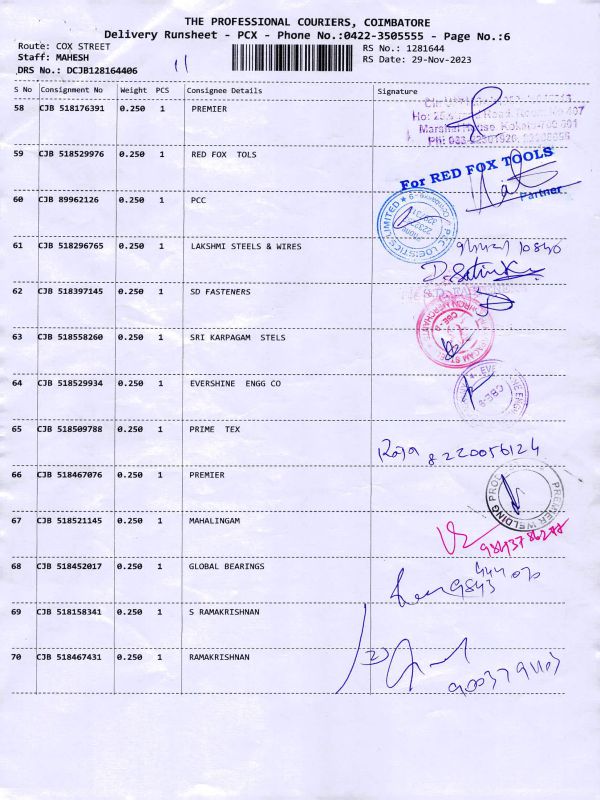 THE PROFESSIONAL COURIERS, COIMBATORE
Delivery Runsheet - PCX - Phone No.:0422-3505555 - Page No.:6
Route: COX STREET RS No.: 1281644
Staff: MAHESH RS Date: 29-Nov-2023
DRS No.: DCJB128164406 11
S No Consignment No Weight PCS Consignee Details Signature
58 CJB 518176391 0.250 1 PREMIER
59 CJB 518529976 0.250 1 RED FOX TOLS
For RED FOX TOOLS
Partner
60 CJB 89962126 0.250 1 PCC
61 CJB 518296765 0.250 1 LAKSHMI STEELS & WIRES
62 CJB 518397145 0.250 1 SD FASTENERS
63 CJB 518558260 0.250 1 SRI KARPAGAM STELS
64 CJB 518529934 0.250 1 EVERSHINE ENGG CO
65 CJB 518509788 0.250 1 PRIME TEX
Raja 8220056124
66 CJB 518467076 0.250 1 PREMIER
PREMIER WELDING
67 CJB 518521145 0.250 1 MAHALINGAM
68 CJB 518452017 0.250 1 GLOBAL BEARINGS
69 CJB 518158341 0.250 1 S RAMAKRISHNAN
70 CJB 518467431 0.250 1 RAMAKRISHNAN